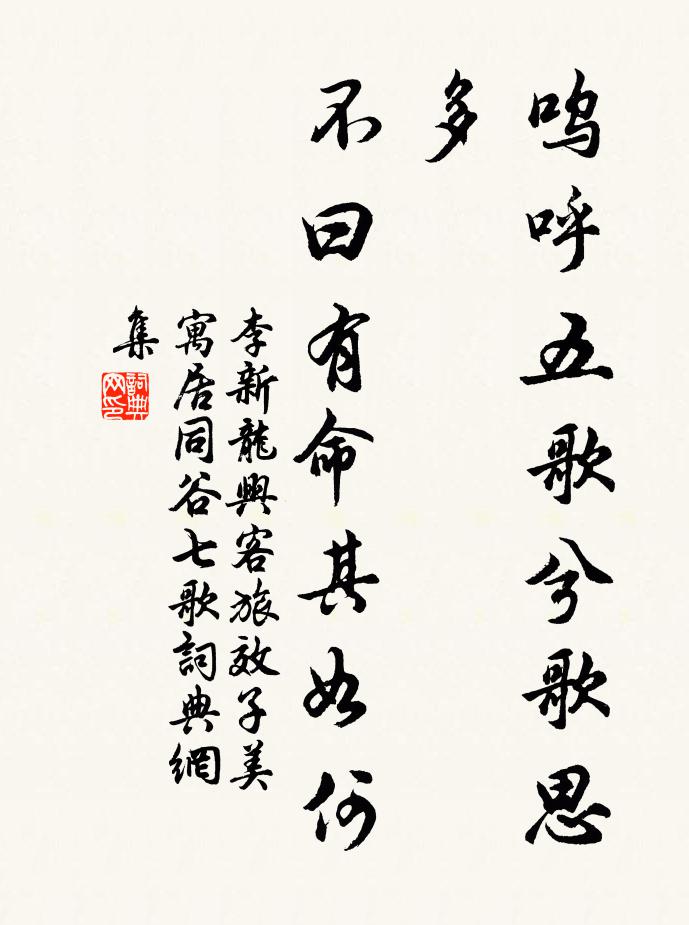 嗚呼五歌兮歌思
多
不曰有命其如何
李新龍興客旅效子美
寓居同谷七歌詞典網
集
詞典
网印